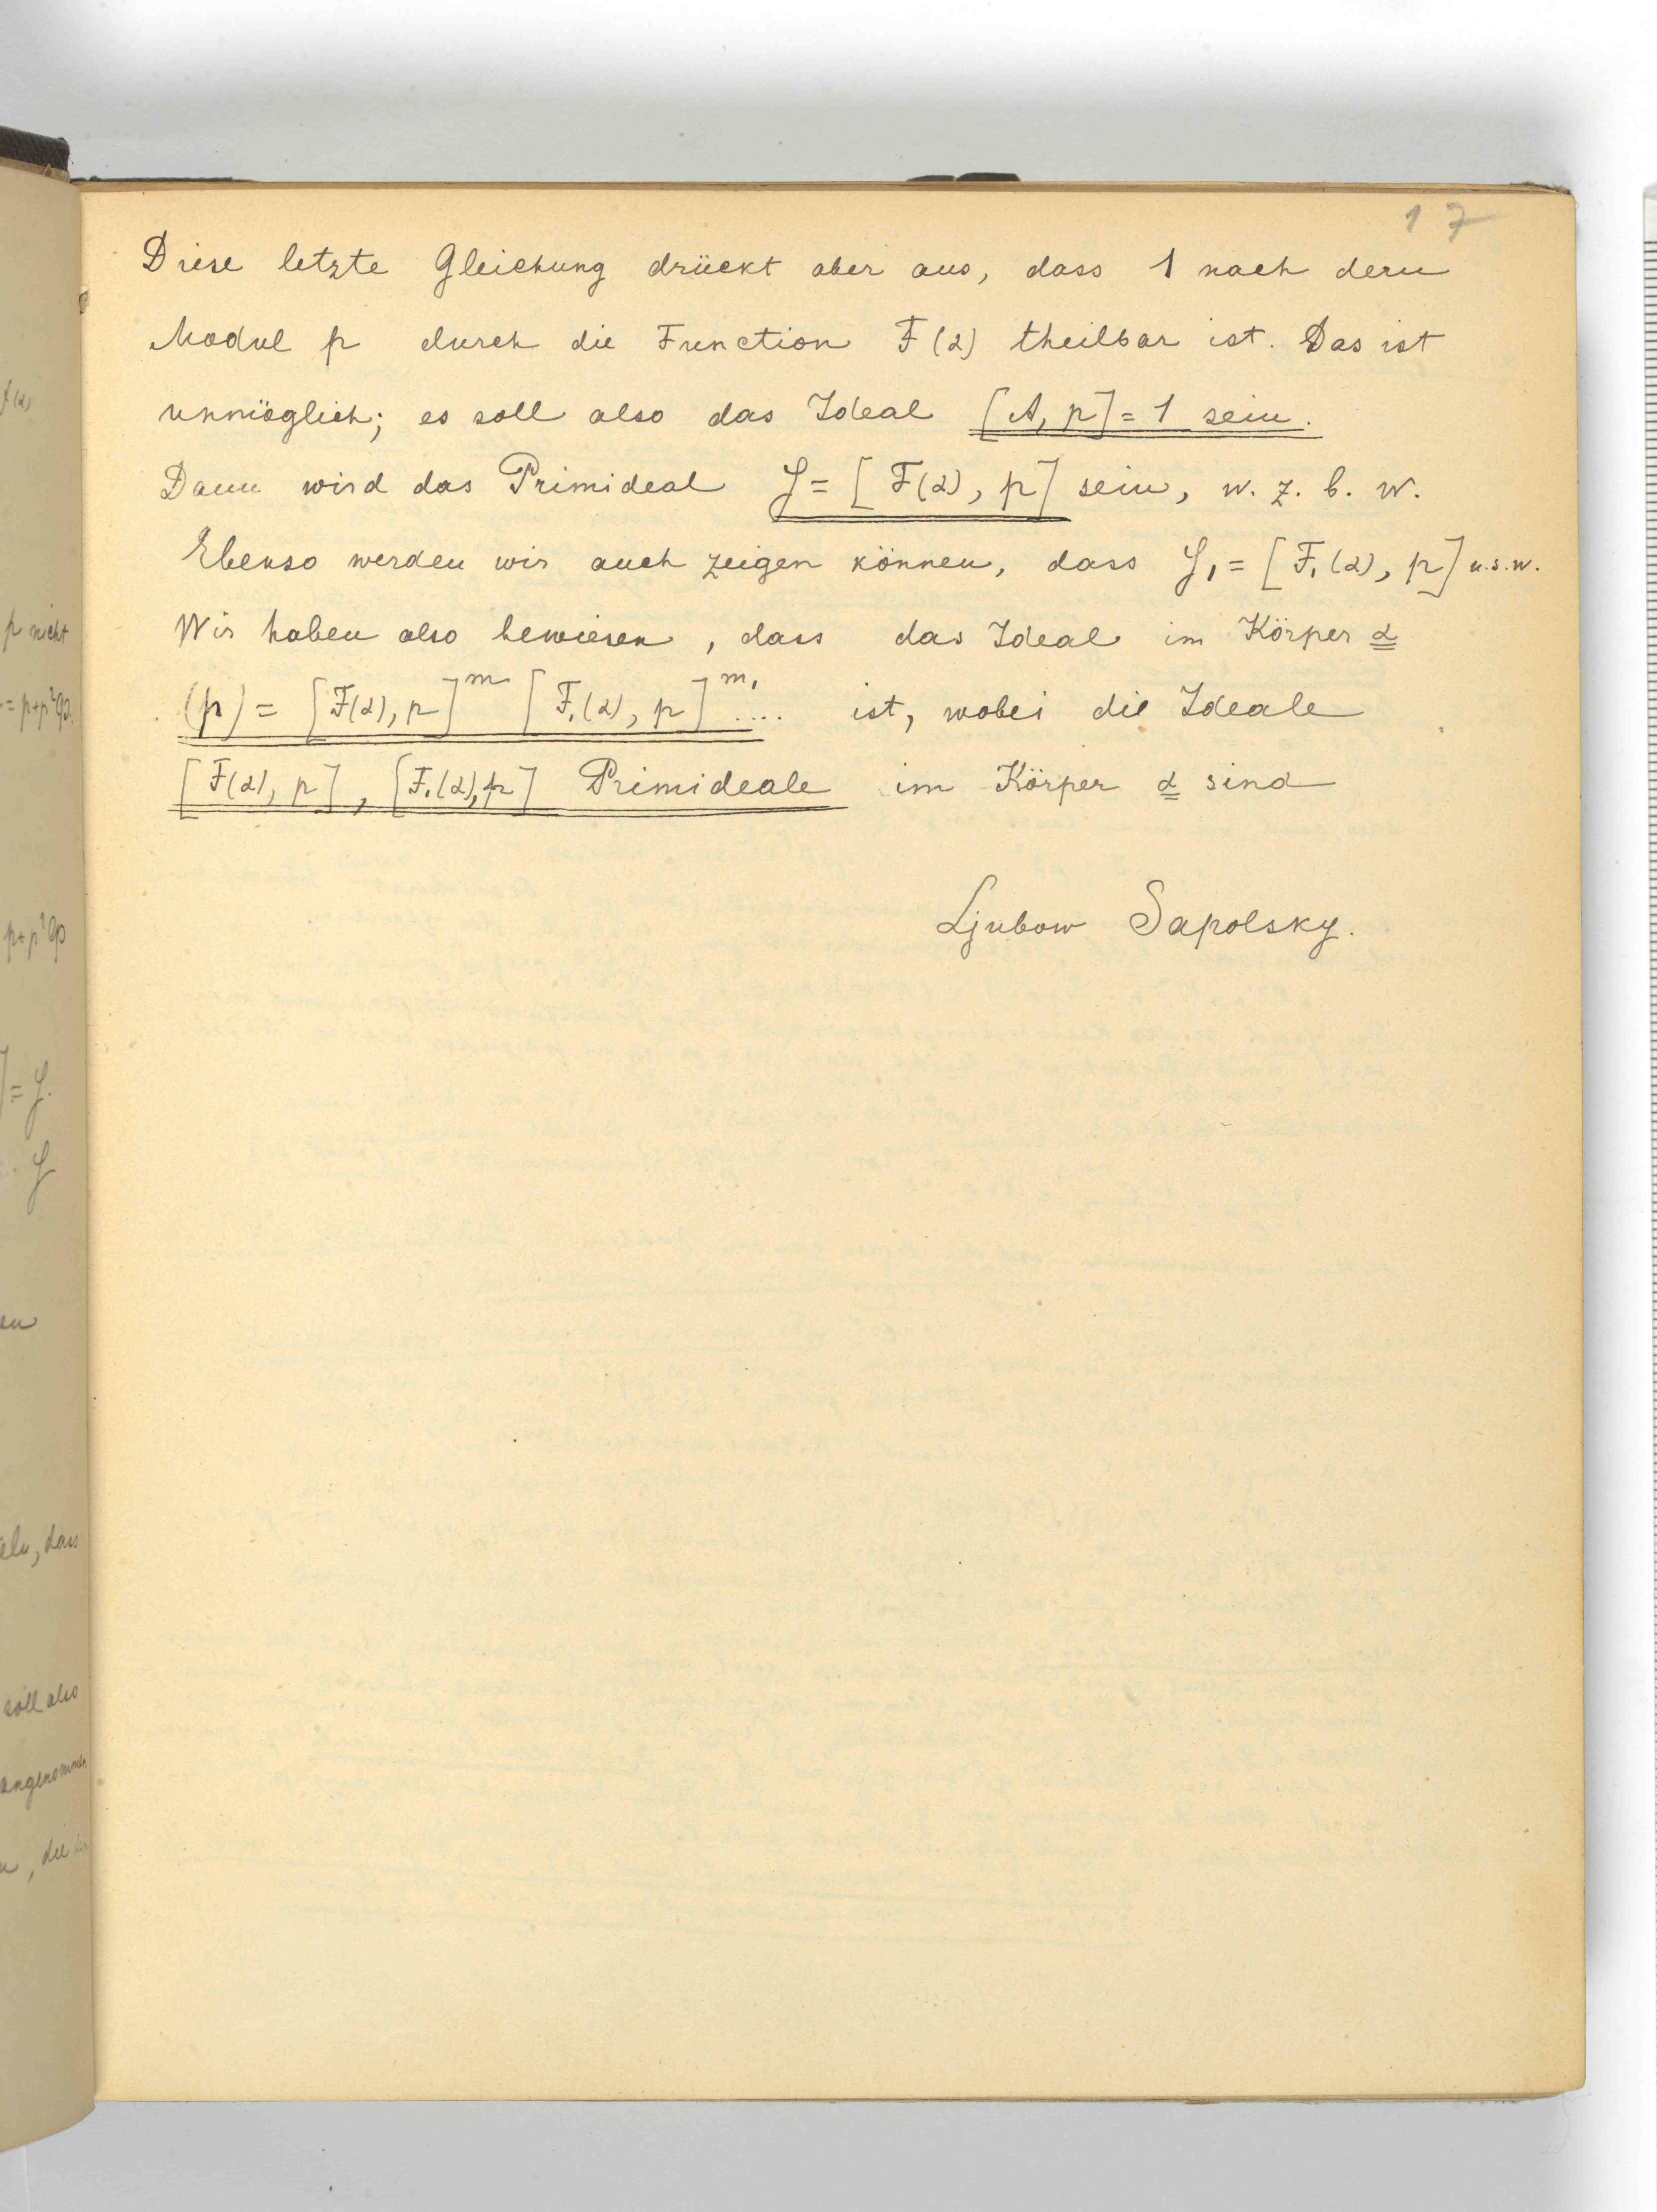 17
Diese letzte Gleichung drückt aber aus, dass 1 nach dem
Modul p durch die Function F(α) theilbar ist. Das ist
unmöglich; es soll also das Ideal [A, p] = 1 sein.
Dann wird das Primideal 𝔭 = [F(α), p] sein, w. z. b. w.
Ebenso werden wir auch zeigen können, dass 𝔭₁ = [F₁(α), p] u.s.w.
Wir haben also bewiesen, dass das Ideal im Körper α
(p) = [F(α), p]ᵐ [F₁(α), p]ᵐ₁ .... ist, wobei die Ideale
[F(α), p], [F₁(α), p] Primideale im Körper α sind
Ljubow Sapolsky.
f(α)
p nicht
= p+p²φ.
p+p²φ
] = 𝔭.
𝔭
en
eln, dass
soll also
angenommen
, die